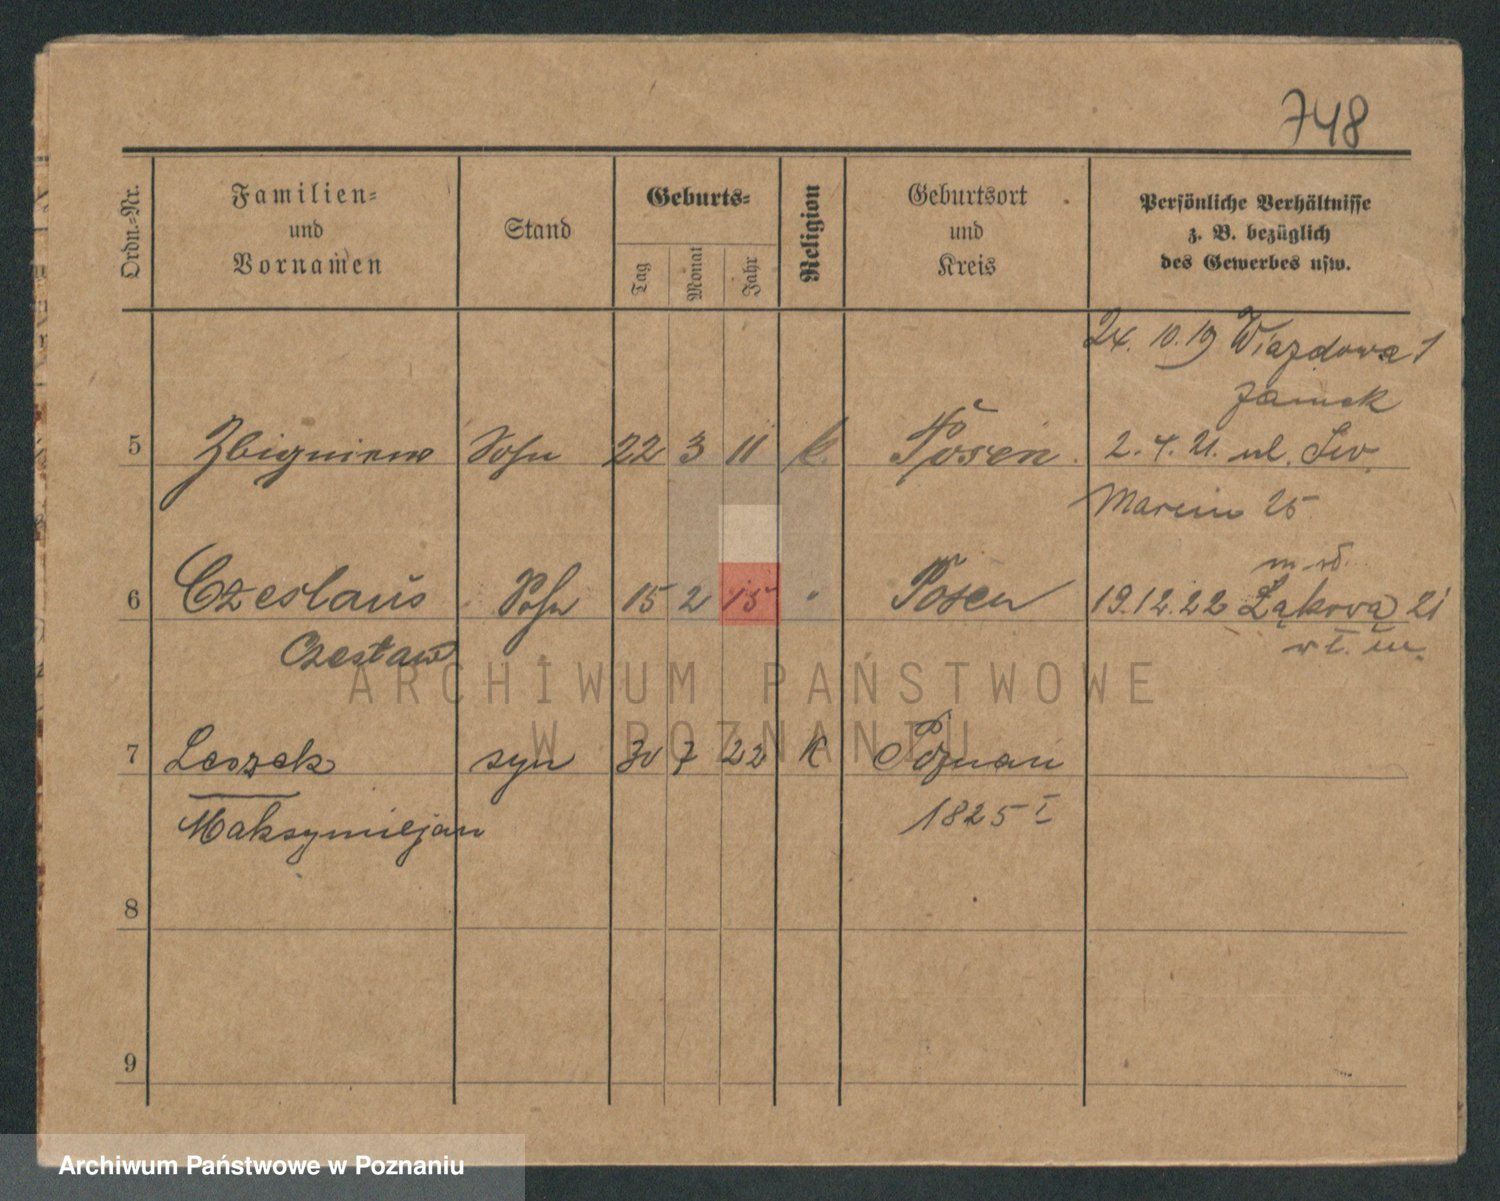 748
Ordn.-Nr.
Familien-
und
Vornamen
Stand
Geburts-
Tag
Monat
Jahr
Religion
Geburtsort
und
Kreis
Persönliche Verhältnisse
z. B. bezüglich
des Gewerbes usw.
24. 10. 19 Wiazdowa 1
Zamek
5 Zbigniew Sohn 22 3 11 k. Posen 2. 4. 21. ul. Św.
Marcin 25
6 Czeslaus Sohn 15 2 15 " Posen 19.12.22 Łąkową 21
Czesław
7 Leszek syn 30 7 22 K Poznań
Maksymiljan 1825 I
8
9
ARCHIWUM PAŃSTWOWE
W POZNANIU
Archiwum Państwowe w Poznaniu